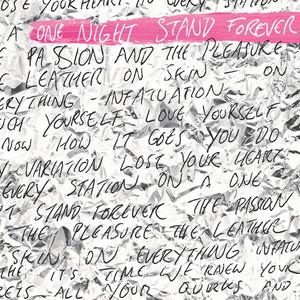 OSE YOUR HEART IN EVERY STATION
A ONE NIGHT STAND FOREVER
PASSION AND THE PLEASURE
E LEATHER ON SKIN ON
ERYTHING - INFATUATION
UCH YOURSELF LOVE YOURSELF
NOW HOW IT GOES YOU DO
Y VARIATION LOSE YOUR HEART
EVERY STATION ON A ONE
T STAND FOREVER THE PASSION
THE PLEASURE THE LEATHER
SKIN ON EVERYTHING INFATU
THE IT'S TIME WE KNEW YOUR
RETS ALL YOUR - QUIRKS AND -